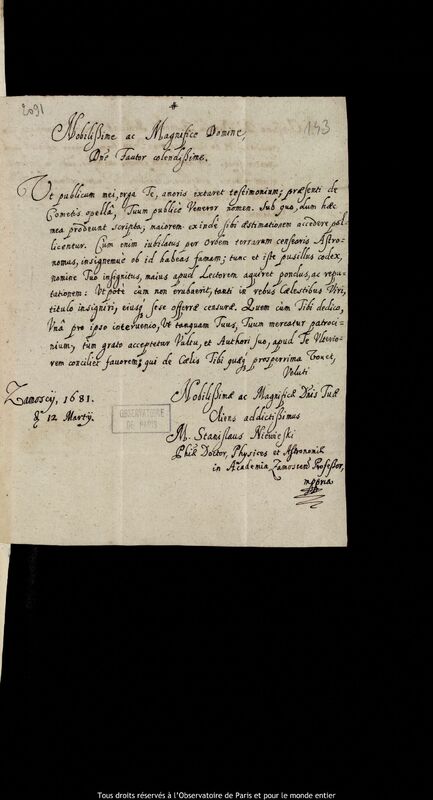 2091
143
Nobilissime ac Magnifice Domine,
Dñe Fautor colendissime.
Ut publicum mei, erga Te, amoris extaret testimonium; præsenti de
Cometis opella, Tuum publicè Veneror nomen. Sub quo, dum hæc
mea prodeunt scripta; maiorem exinde sibi æstimationem accedere pol
licentur. Cum enim iubilatus per Orbem terrarum censoris Astro-
nomus, insignemque ob id habeas famam; tunc et iste pusillus codex,
nomine Tuo insignitus, maius apud Lectorem aquiret pondus, ac repu
tationem: Ut pote cùm non erubuerit, tanti in rebus Cælestibus Viri,
titulo insigniri, eiusq; sese offerre censuræ. Quem cùm Tibi dedico,
Vnâ pro ipso intervenio, Ut tanquam Tuus, Tuum mereatur patroci-
nium, tum grato acceptetur Vultu, et Authori suo, apud Te Vlterio-
rem conciliet favorem; qui de Cœlis Tibi quæq; prosperrima Vovet,
Veluti
Zamoscij, 1681.
12 Martij.
Nobilissimæ ac Magnificæ Dñis Tuæ
Cliens addictissimus
M. Stanislaus Niewieski
Philæ Doctor, Physices et Astronomiæ
in Academia Zamoscen Professor,
mppria
OBSERVATOIRE
DE PARIS
Tous droits réservés à l'Observatoire de Paris et pour le monde entier